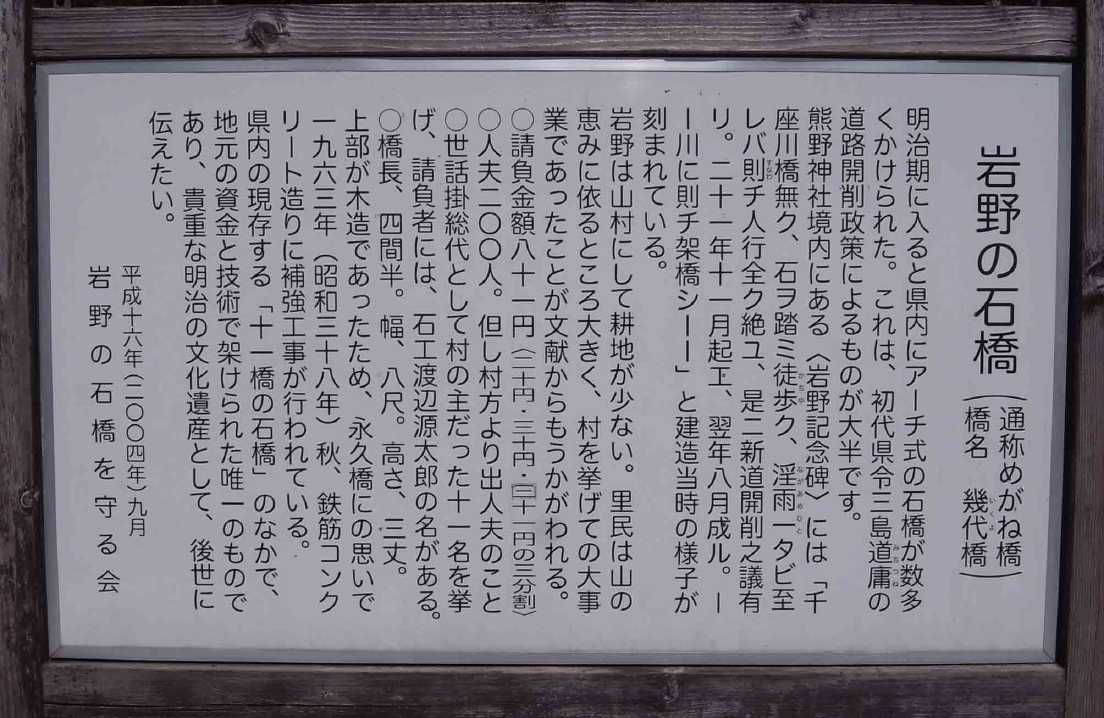 岩野の石橋
（通称めがね橋
橋名　幾代橋）
明治期に入ると県内にアーチ式の石橋が数多
くかけられた。これは、初代県令三島道庸の
道路開削政策によるものが大半です。
熊野神社境内にある〈岩野記念碑〉には「千
座川橋無ク、石ヲ踏ミ徒歩ク、淫雨一タビ至
レバ則チ人行全ク絶ユ、是ニ新道開削之議有
リ。二十一年十一月起工、翌年八月成ル。ー
ー川に則チ架橋シーー」と建造当時の様子が
刻まれている。
岩野は山村にして耕地が少ない。里民は山の
恵みに依るところ大きく、村を挙げての大事
業であったことが文献からもうかがわれる。
○請負金額八十一円（二十円・三十円・三十一円の三分割）
○人夫二〇〇人。但し村方より出人夫のこと
○世話掛総代として村の主だった十一名を挙
げ、請負者には、石工渡辺源太郎の名がある。
○橋長、四間半。幅、八尺。高さ、三丈。
上部が木造であったため、永久橋にの思いで
一九六三年（昭和三十八年）秋、鉄筋コンク
リート造りに補強工事が行われている。
県内の現存する「十一橋の石橋」のなかで、
地元の資金と技術で架けられた唯一のもので
あり、貴重な明治の文化遺産として、後世に
伝えたい。
平成十六年（二〇〇四年）九月
岩野の石橋を守る会